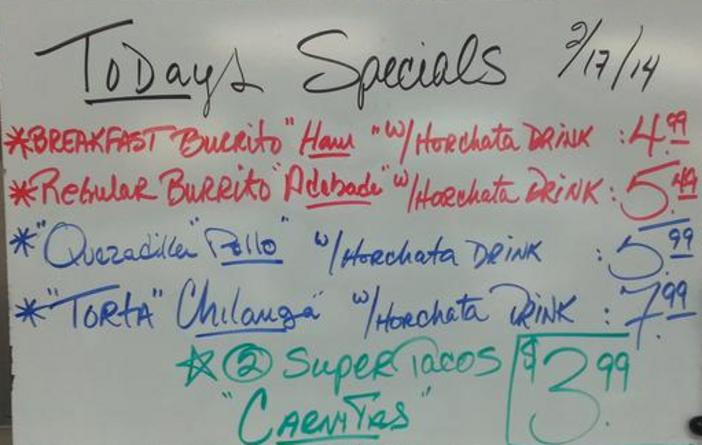 ToDays Specials 2/17/14
*BREAKFAST Burrito "Ham" w/Horchata DRINK : 4.99
*Regular BURRITO "Adobada" w/Horchata DRINK : 5.49
*"Quezadilla" Pollo" w/Horchata DRINK : 5.99
*"TORTA" Chilanga" w/Horchata DRINK : 7.99
☆ ② SUPER TACOS $3.99
"CARNITAS"